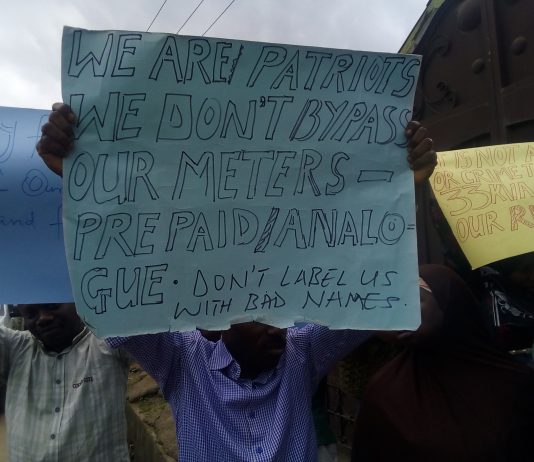 WE ARE PATRIOTS
WE DON'T BYPASS
OUR METERS -
PREPAID/ANALO-
GUE. DON'T LABEL US
WITH BAD NAMES.
IS NOT A
OR CRIME T
33KVA
OUR R